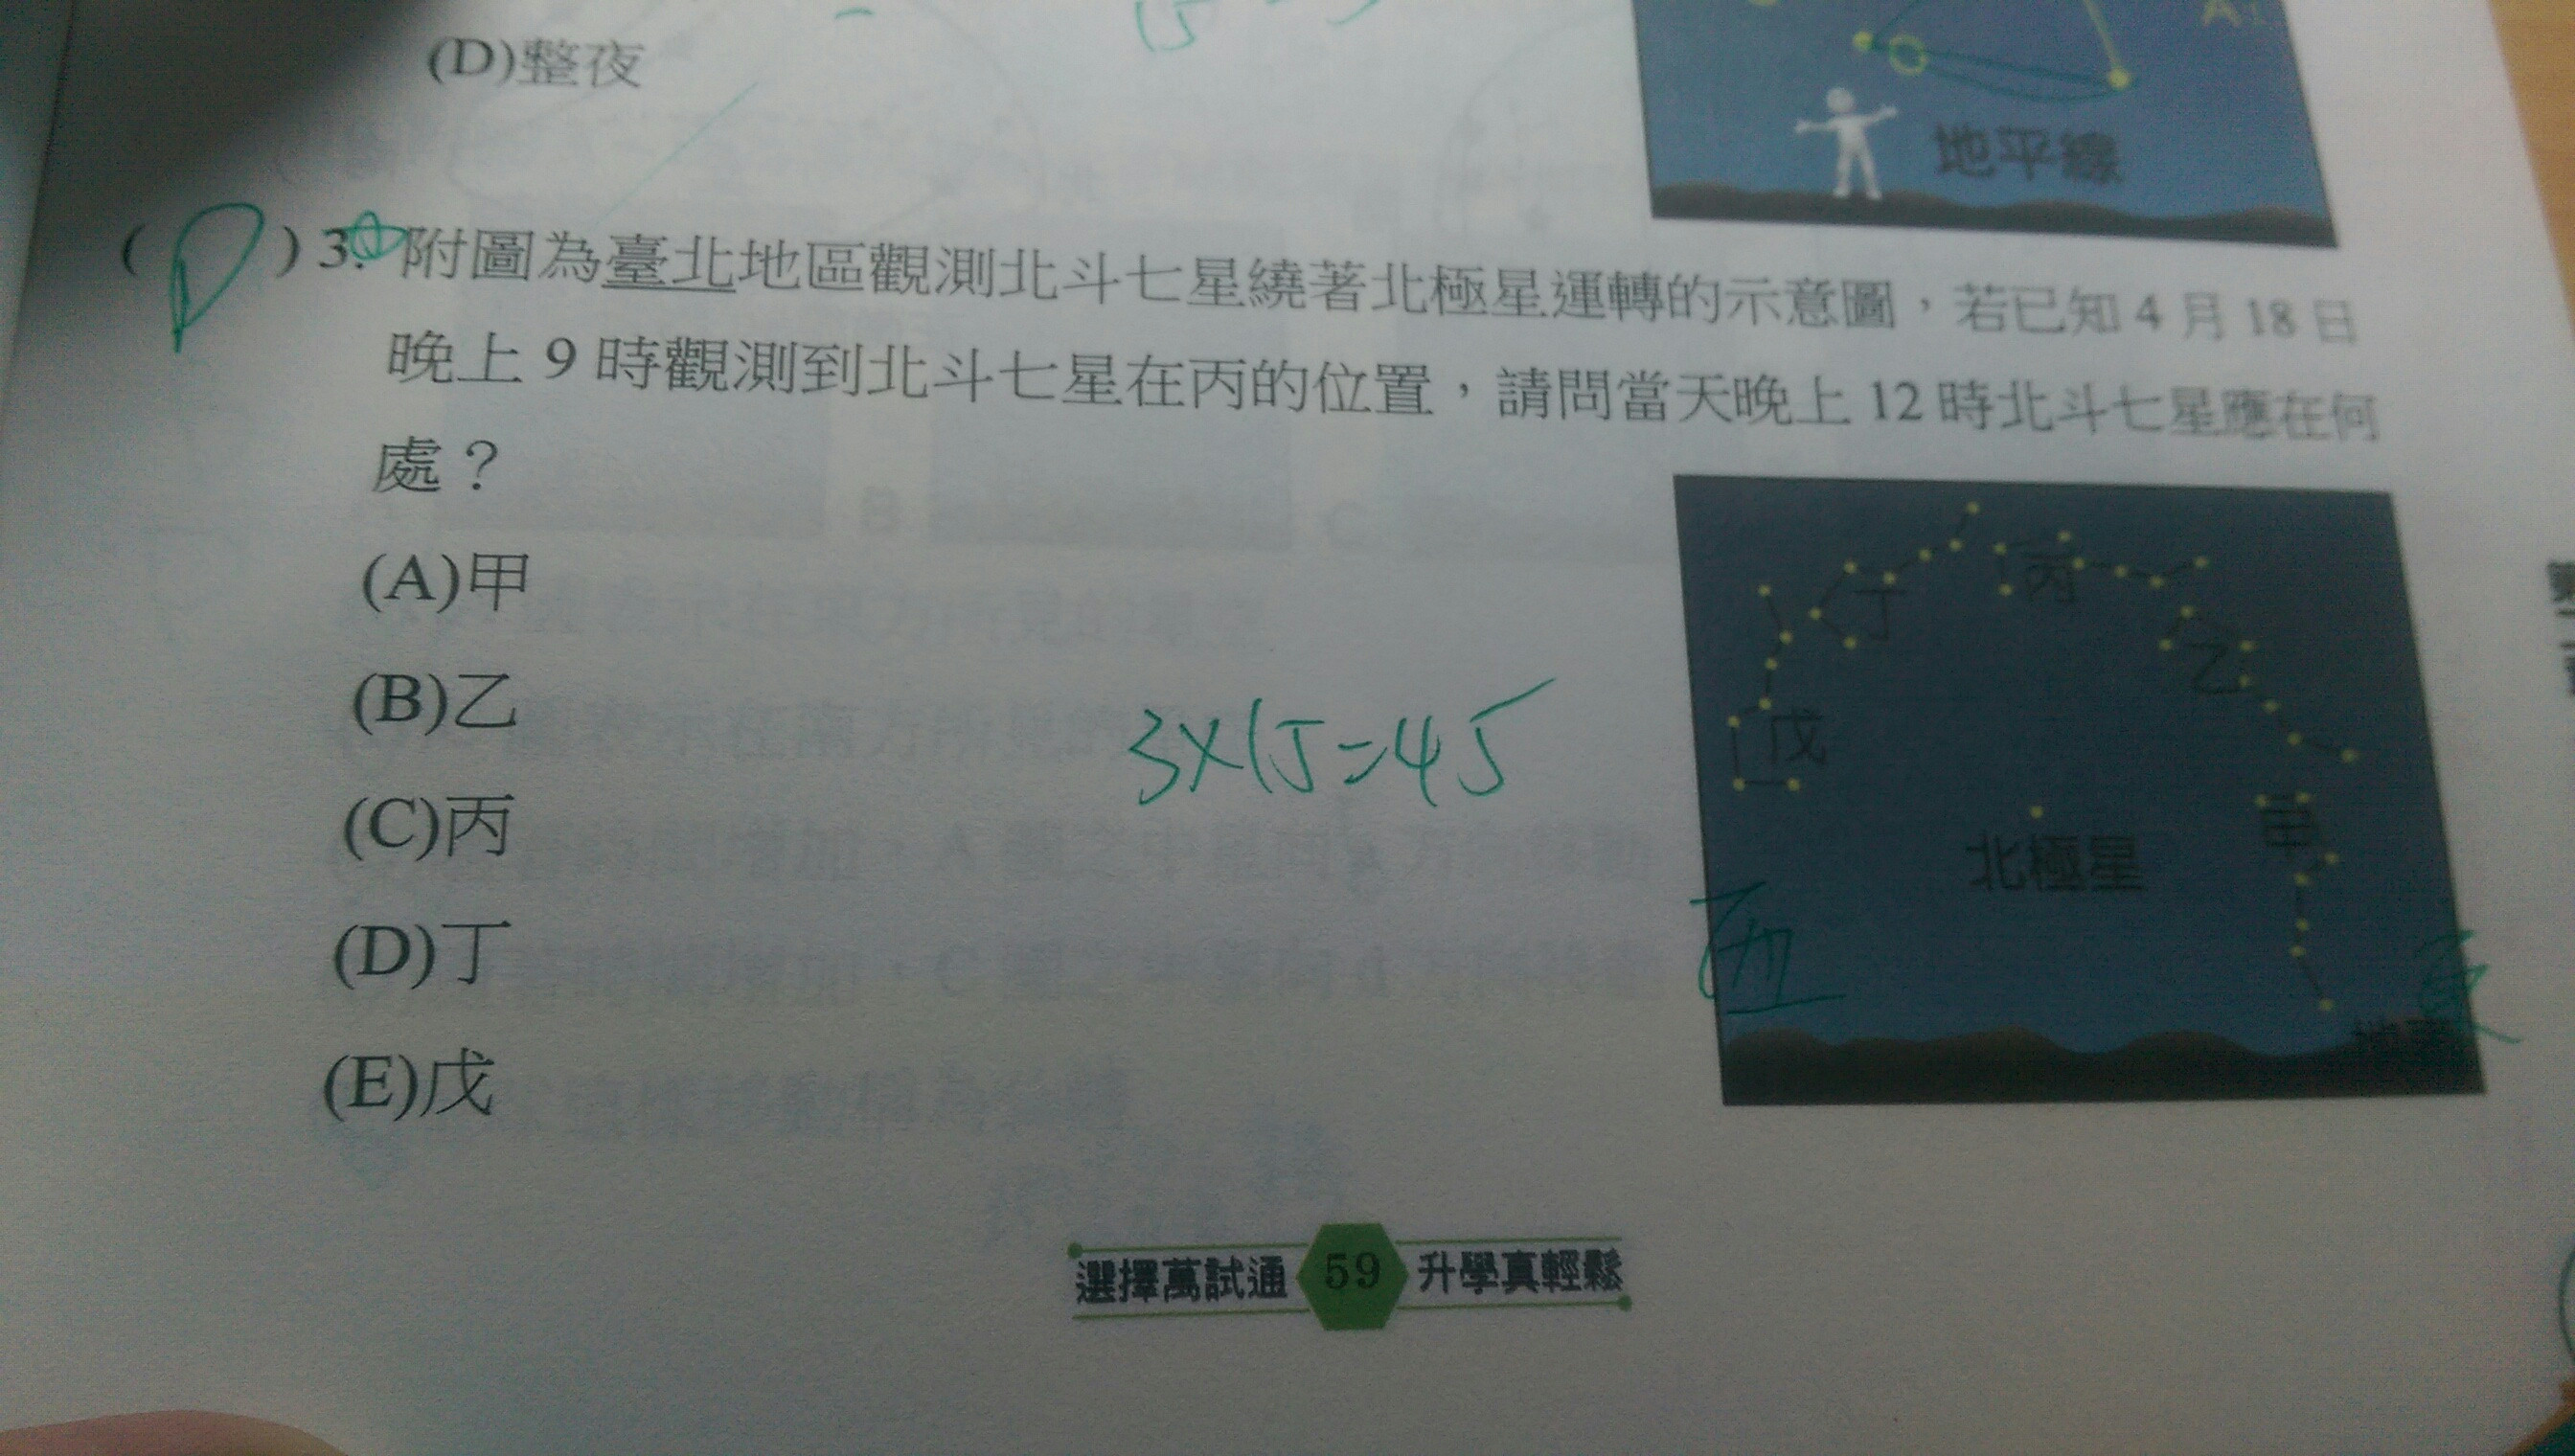 (D)整夜
地平線
(D)3.附圖為臺北地區觀測北斗七星繞著北極星運轉的示意圖，若已知4月18日
晚上9時觀測到北斗七星在丙的位置，請問當天晚上12時北斗七星應在何
處？
(A)甲
(B)乙
(C)丙
(D)丁
(E)戊
3×15=45
丙
丁
乙
戊
甲
北極星
西
選擇萬試通 59 升學真輕鬆